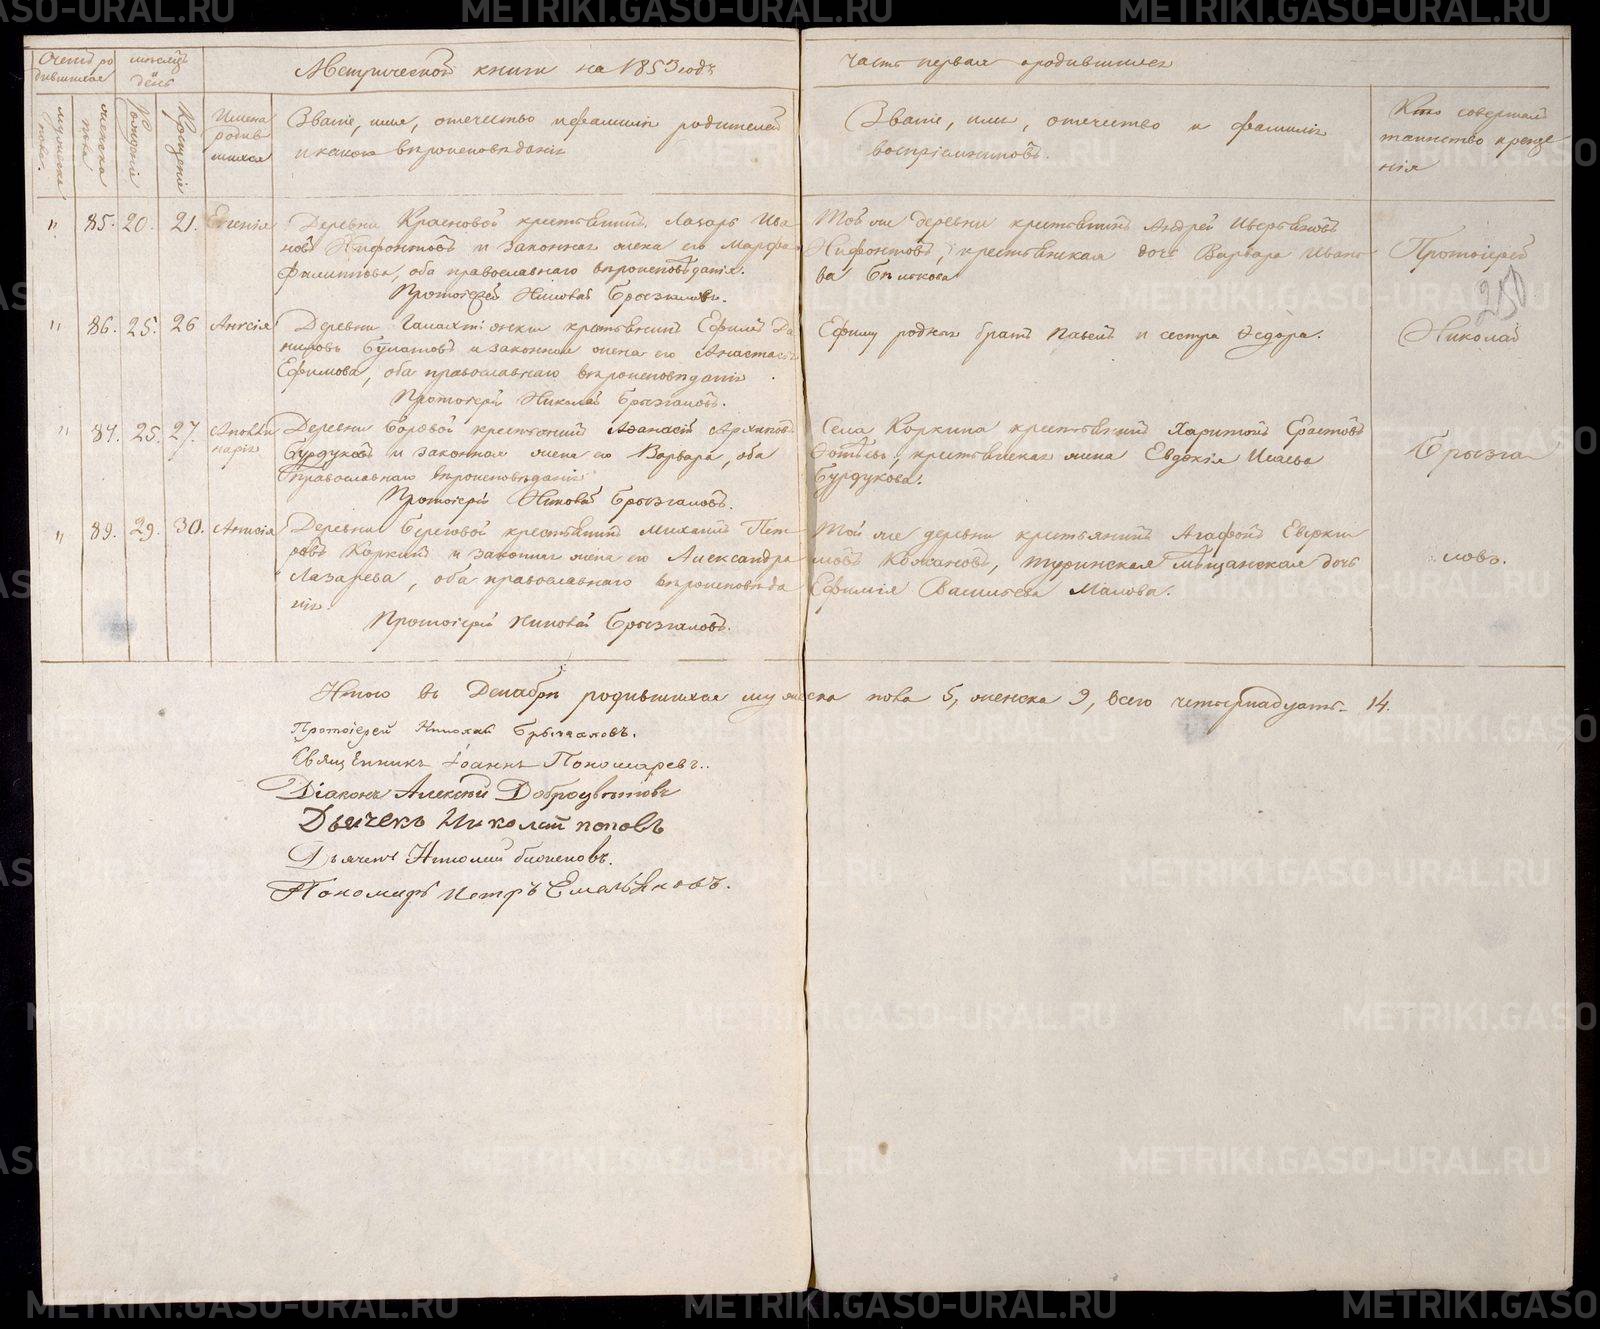 Счетъ родившихся
мѣсяцъ и день
Метрической книги на 1853 годъ
часть первая о родившихся
мужеска пола.
женска пола
Рожденія
Крещенія
Имена родившихся
Званіе, имя, отечество и фамилія родителей
и какого вѣроисповѣданія
Званіе, имя, отечество и фамилія
воспріемниковъ.
Кто совершалъ
таинство крещенія
" 85. 20. 21. Евгенія
Деревни Красновой крестьянинъ Лазарь Ива
новъ Нифонтовъ и законная жена его Марфа
Филиппова, оба православнаго вѣроисповѣданія.
Протоіерей Николай Брызгаловъ.
Той же деревни крестьянинъ Андрей
Нифонтовъ, крестьянская дочь Варвара Ивано
ва
Протоіерей
" 86. 25. 26 Анисія
Деревни крестьянинъ Ефимъ Да
ниловъ Булатовъ и законная жена его Анастасія
Ефимова, оба православнаго вѣроисповѣданія.
Протоіерей Николай Брызгаловъ.
Ефиму родная братъ Павелъ и сестра Ѳедора.
Николай
" 87. 25. 27. Аполли
нарія
Деревни Боровой крестьянинъ Аѳанасій Архиповъ
Бурдуковъ и законная жена его Варвара, оба
православнаго вѣроисповѣданія
Протоіерей Николай Брызгаловъ.
Села Коркина крестьянинъ Харитонъ Ерастовъ
крестьянская жена Евдокія Исаева
Бурдукова.
Брызга
" 89. 29. 30. Анисія
Деревни Береговой крестьянинъ Михаилъ Пет
ровъ Коркинъ и законная жена его Александра
Лазарева, оба православнаго вѣроисповѣда
нія.
Протоіерей Николай Брызгаловъ.
Той же деревни крестьянинъ Агафонъ Евдоки
мовъ туринская мѣщанская дочь
Ефимія Васильева Малова.
ловъ.
Итого въ Декабрѣ родившихся мужеска пола 5, женска 9, всего четырнадцать 14.
Протоіерей Николай Брызгаловъ.
Священникъ Іоаннъ Пономаревъ.
Діаконъ Алексѣй Доброцвѣтовъ
Дьячекъ Николай поповъ
Дьячекъ Николай
Пономарь Петръ Емельяновъ.
METRIKI.GASO-URAL.RU